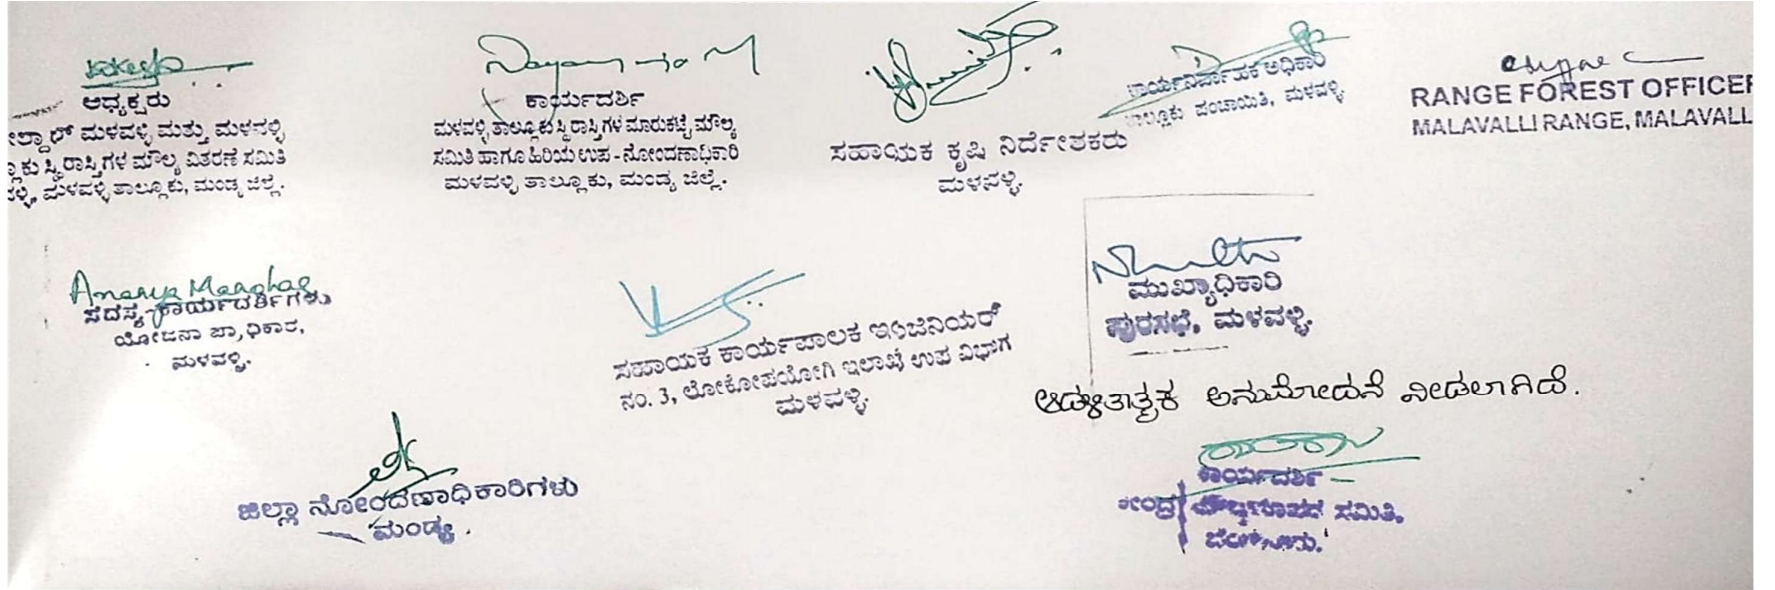 ಅಧ್ಯಕ್ಷರು
ಮಳವಳ್ಳಿ ಮತ್ತು ಮಳವಳ್ಳಿ
ಸ್ಥಿರಾಸ್ತಿಗಳ ಮೌಲ್ಯ ವಿತರಣೆ ಸಮಿತಿ
ಮಳವಳ್ಳಿ ತಾಲ್ಲೂಕು, ಮಂಡ್ಯ ಜಿಲ್ಲೆ.
ಕಾರ್ಯದರ್ಶಿ
ಮಳವಳ್ಳಿ ತಾಲ್ಲೂಕು ಸ್ಥಿರಾಸ್ತಿಗಳ ಮಾರುಕಟ್ಟೆ ಮೌಲ್ಯ
ಸಮಿತಿ ಹಾಗೂ ಹಿರಿಯ ಉಪ-ನೋಂದಣಾಧಿಕಾರಿ
ಮಳವಳ್ಳಿ ತಾಲ್ಲೂಕು, ಮಂಡ್ಯ ಜಿಲ್ಲೆ.
ಸಹಾಯಕ ಕೃಷಿ ನಿರ್ದೇಶಕರು
ಮಳವಳ್ಳಿ.
ಕಾರ್ಯನಿರ್ವಾಹಕ ಅಧಿಕಾರಿ
ತಾಲ್ಲೂಕು ಪಂಚಾಯಿತಿ, ಮಳವಳ್ಳಿ.
RANGE FOREST OFFICER
MALAVALLI RANGE, MALAVALL
ಸದಸ್ಯ-ಕಾರ್ಯದರ್ಶಿಗಳು
ಯೋಜನಾ ಪ್ರಾಧಿಕಾರ,
ಮಳವಳ್ಳಿ.
ಸಹಾಯಕ ಕಾರ್ಯಪಾಲಕ ಇಂಜಿನಿಯರ್
ನಂ. 3, ಲೋಕೋಪಯೋಗಿ ಇಲಾಖೆ ಉಪ ವಿಭಾಗ
ಮಳವಳ್ಳಿ.
ಮುಖ್ಯಾಧಿಕಾರಿ
ಪುರಸಭೆ, ಮಳವಳ್ಳಿ.
ಆಡಳಿತಾತ್ಮಕ ಅನುಮೋದನೆ ನೀಡಲಾಗಿದೆ.
ಜಿಲ್ಲಾ ನೋಂದಣಾಧಿಕಾರಿಗಳು
ಮಂಡ್ಯ.
ಕಾರ್ಯದರ್ಶಿ
ಕೇಂದ್ರ ಮೌಲ್ಯಮಾಪನ ಸಮಿತಿ,
ಬೆಂಗಳೂರು.